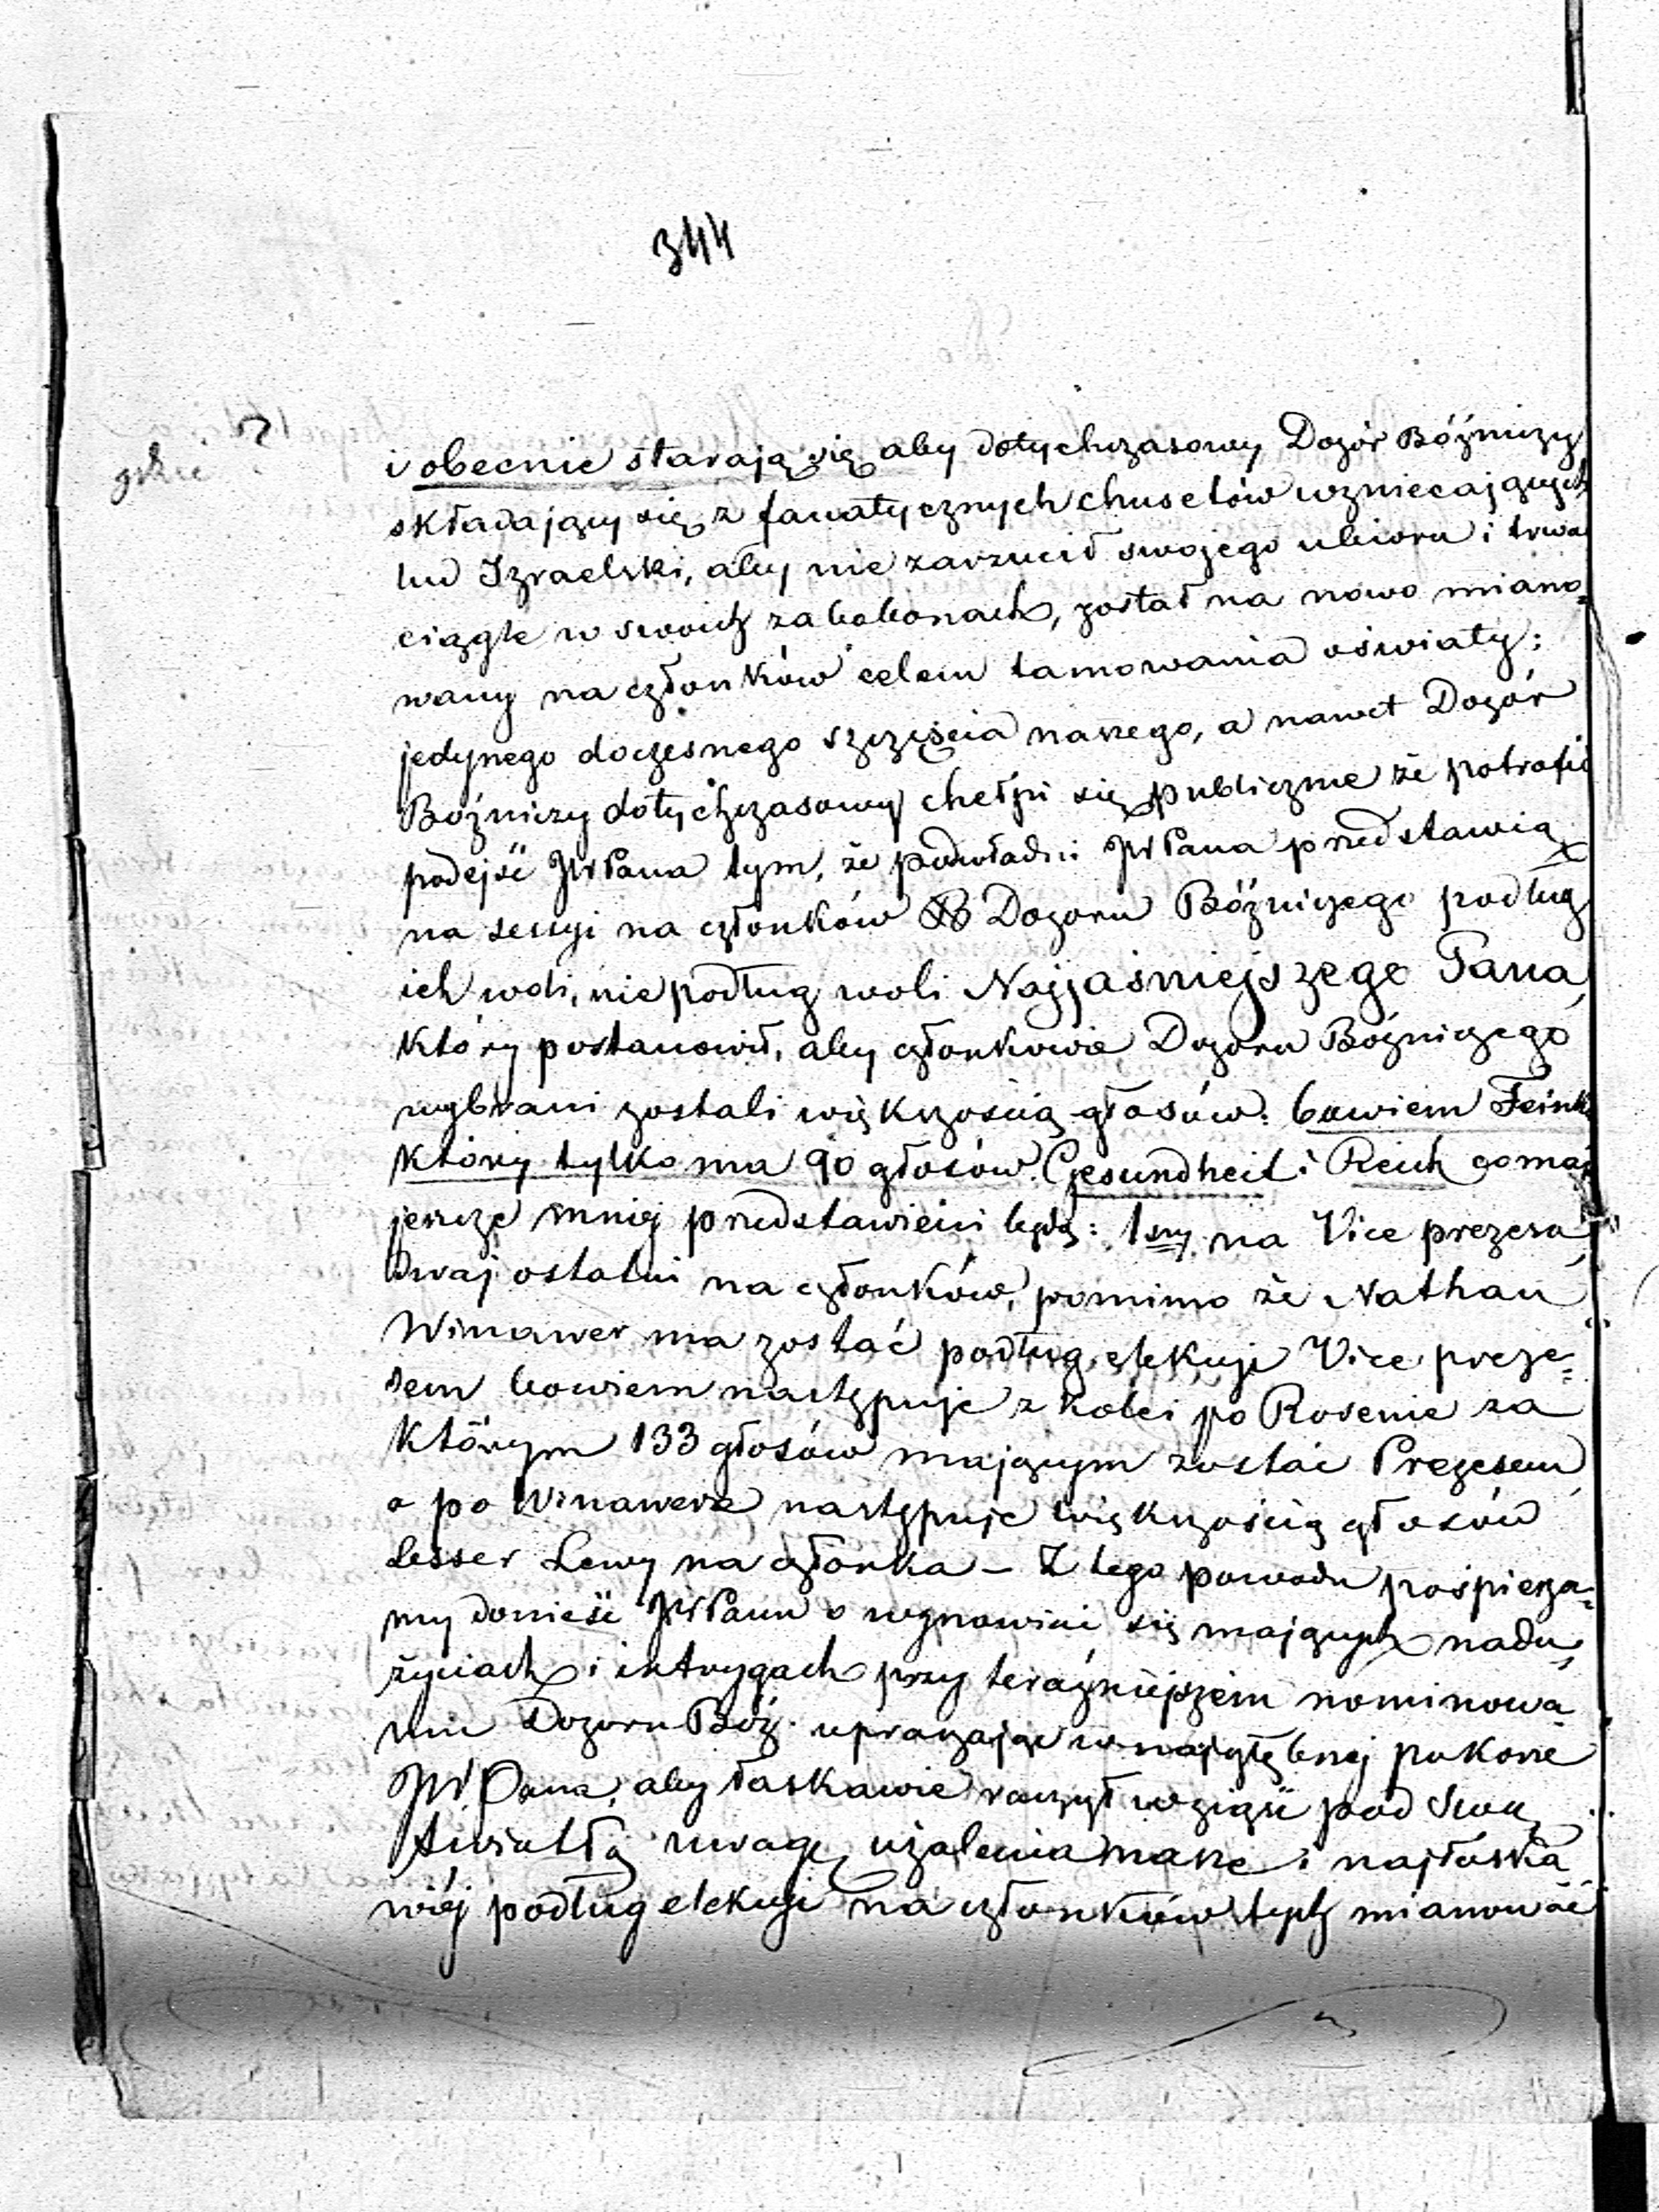 344
?
i obecnie starają się aby dotychczasowy Dozór Bóźniczy
składający się z fanatycznych chusetów wzniecających
lud Izraelski, aby nie zarzucił swojego ubioru i trwa
ciągle w swoich zabobonach, został na nowo miano-
wany na członków celem tamowania oświaty;
jedynego doczesnego szczęścia naszego, a nawet Dozór
Boźniczy dotychczasowy chełpi się publicznie że potrafi
podejść JWPana tym, że podwładni JWPana przedstawią
na sessyi na członków Dozoru Bóźniczego podług
ich woli, nie podług woli Najjaśniejszego Pana,
który postanowił, aby członkowie Dozoru Bóźniczego
wybrani zostali większością głosów: bowiem Feink
który tylko ma 90 głosów Gesundheit i Reich co mają
jeszcze mniej przedstawieni będą: 1szy na Vice prezesa,
dwaj ostatni na członków, pomimo że Nathan
Winawer ma zostać podług elekcyi Vice preze-
sem bowiem następuje z kolei po Rosenie za
którym 133 głosów mającym zostać Prezesem,
a po Winawerze następuje większością głosów
Lesser Lewy na członka – Z tego powodu pośpiesza-
my donieść JWPanu o wznowić się mających nadu-
życiach i intrygach przy teraźniejszem nominowa
niu Dozoru Bóź. upraszając w najgłębszej pokorze
JWPana, aby łaskawie raczył wziąść pod Swą
światłą uwagę użalenia nasze i najłaska
wiéj podług elekcyi na członków tych mianować